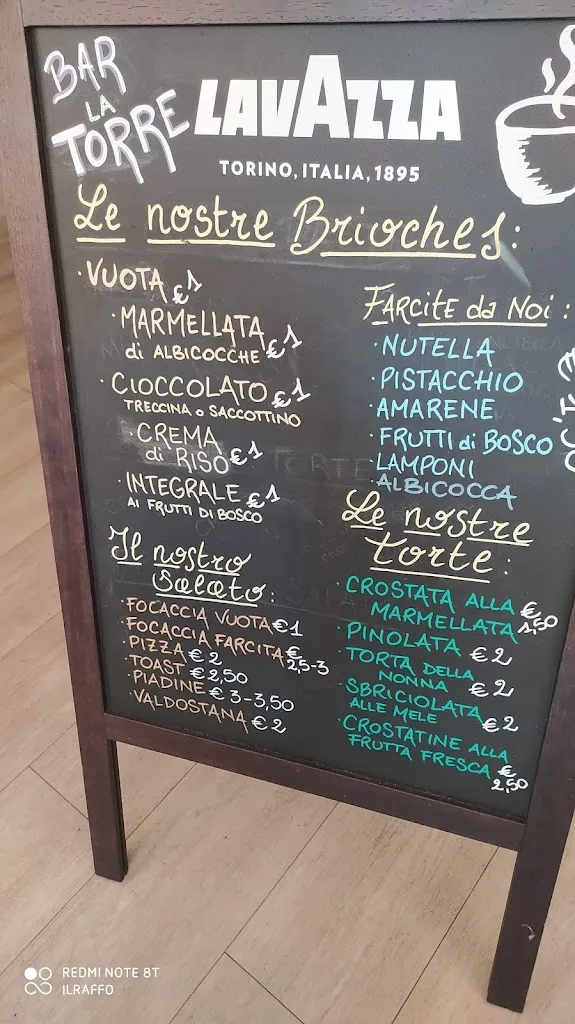 BAR
LA
TORRE
LAVAZZA
TORINO, ITALIA, 1895
Le nostre Brioches:
· VUOTA €1
· MARMELLATA
di ALBICOCCHE €1
· CIOCCOLATO €1
TRECCINA o SACCOTTINO
· CREMA
di RISO €1
· INTEGRALE €1
AI FRUTTI DI BOSCO
FARCITE da NOI:
· NUTELLA
· PISTACCHIO
· AMARENE
· FRUTTI di BOSCO
· LAMPONI
· ALBICOCCA
Il nostro
Salato:
· FOCACCIA VUOTA €1
· FOCACCIA FARCITA €
2,5-3
· PIZZA €2
· TOAST €2,50
· PIADINE €3-3,50
· VALDOSTANA €2
Le nostre
torte:
· CROSTATA ALLA
MARMELLATA €
1,50
· PINOLATA €2
· TORTA DELLA
NONNA €2
· SBRICIOLATA
ALLE MELE €2
· CROSTATINE ALLA
FRUTTA FRESCA €
2,50
REDMI NOTE 8T
ILRAFFO